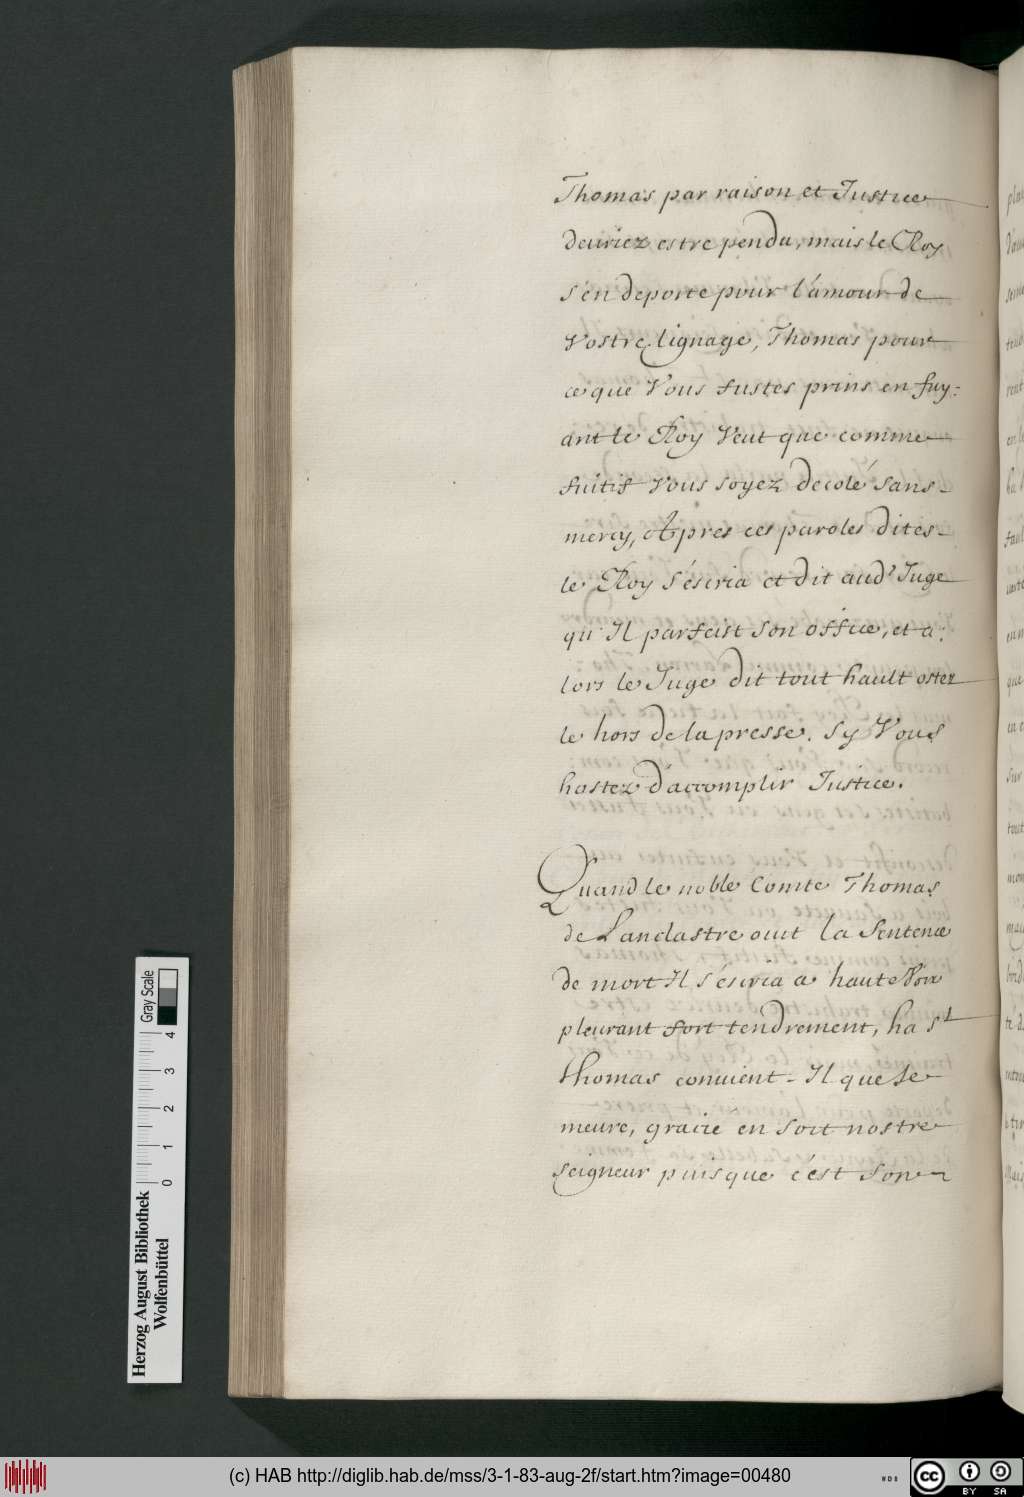 Thomas par raison et Justice
deuriez estre pendu, mais le Roy
s'en deporte pour l'amour de
vostre lignage, Thomas pour
ce que Vous fustes prins en fuy:
ant le Roy Veut que comme
fuitif vous soyez decolé sans
mercy, Apres ces paroles dites
le Roy s'escria et dit aud.t Juge
qu'Il parfeist son office, et a:
lors le Juge dit tout hault ostez
le hors de la presse. Sy Vous
hastez d'accomplir Justice.
Quand le noble Comte Thomas
de Lanclastre ouit la Sentence
de mort Il s'escria a haute Voix
pleurant fort tendrement, ha St
thomas conuient-Il que Je
meure, gracie en soit nostre
seigneur puis que c'est son
Herzog August Bibliothek
Wolfenbüttel
0 1 2 3 4
Gray Scale
(c) HAB http://diglib.hab.de/mss/3-1-83-aug-2f/start.htm?image=00480
WDB
cc BY SA